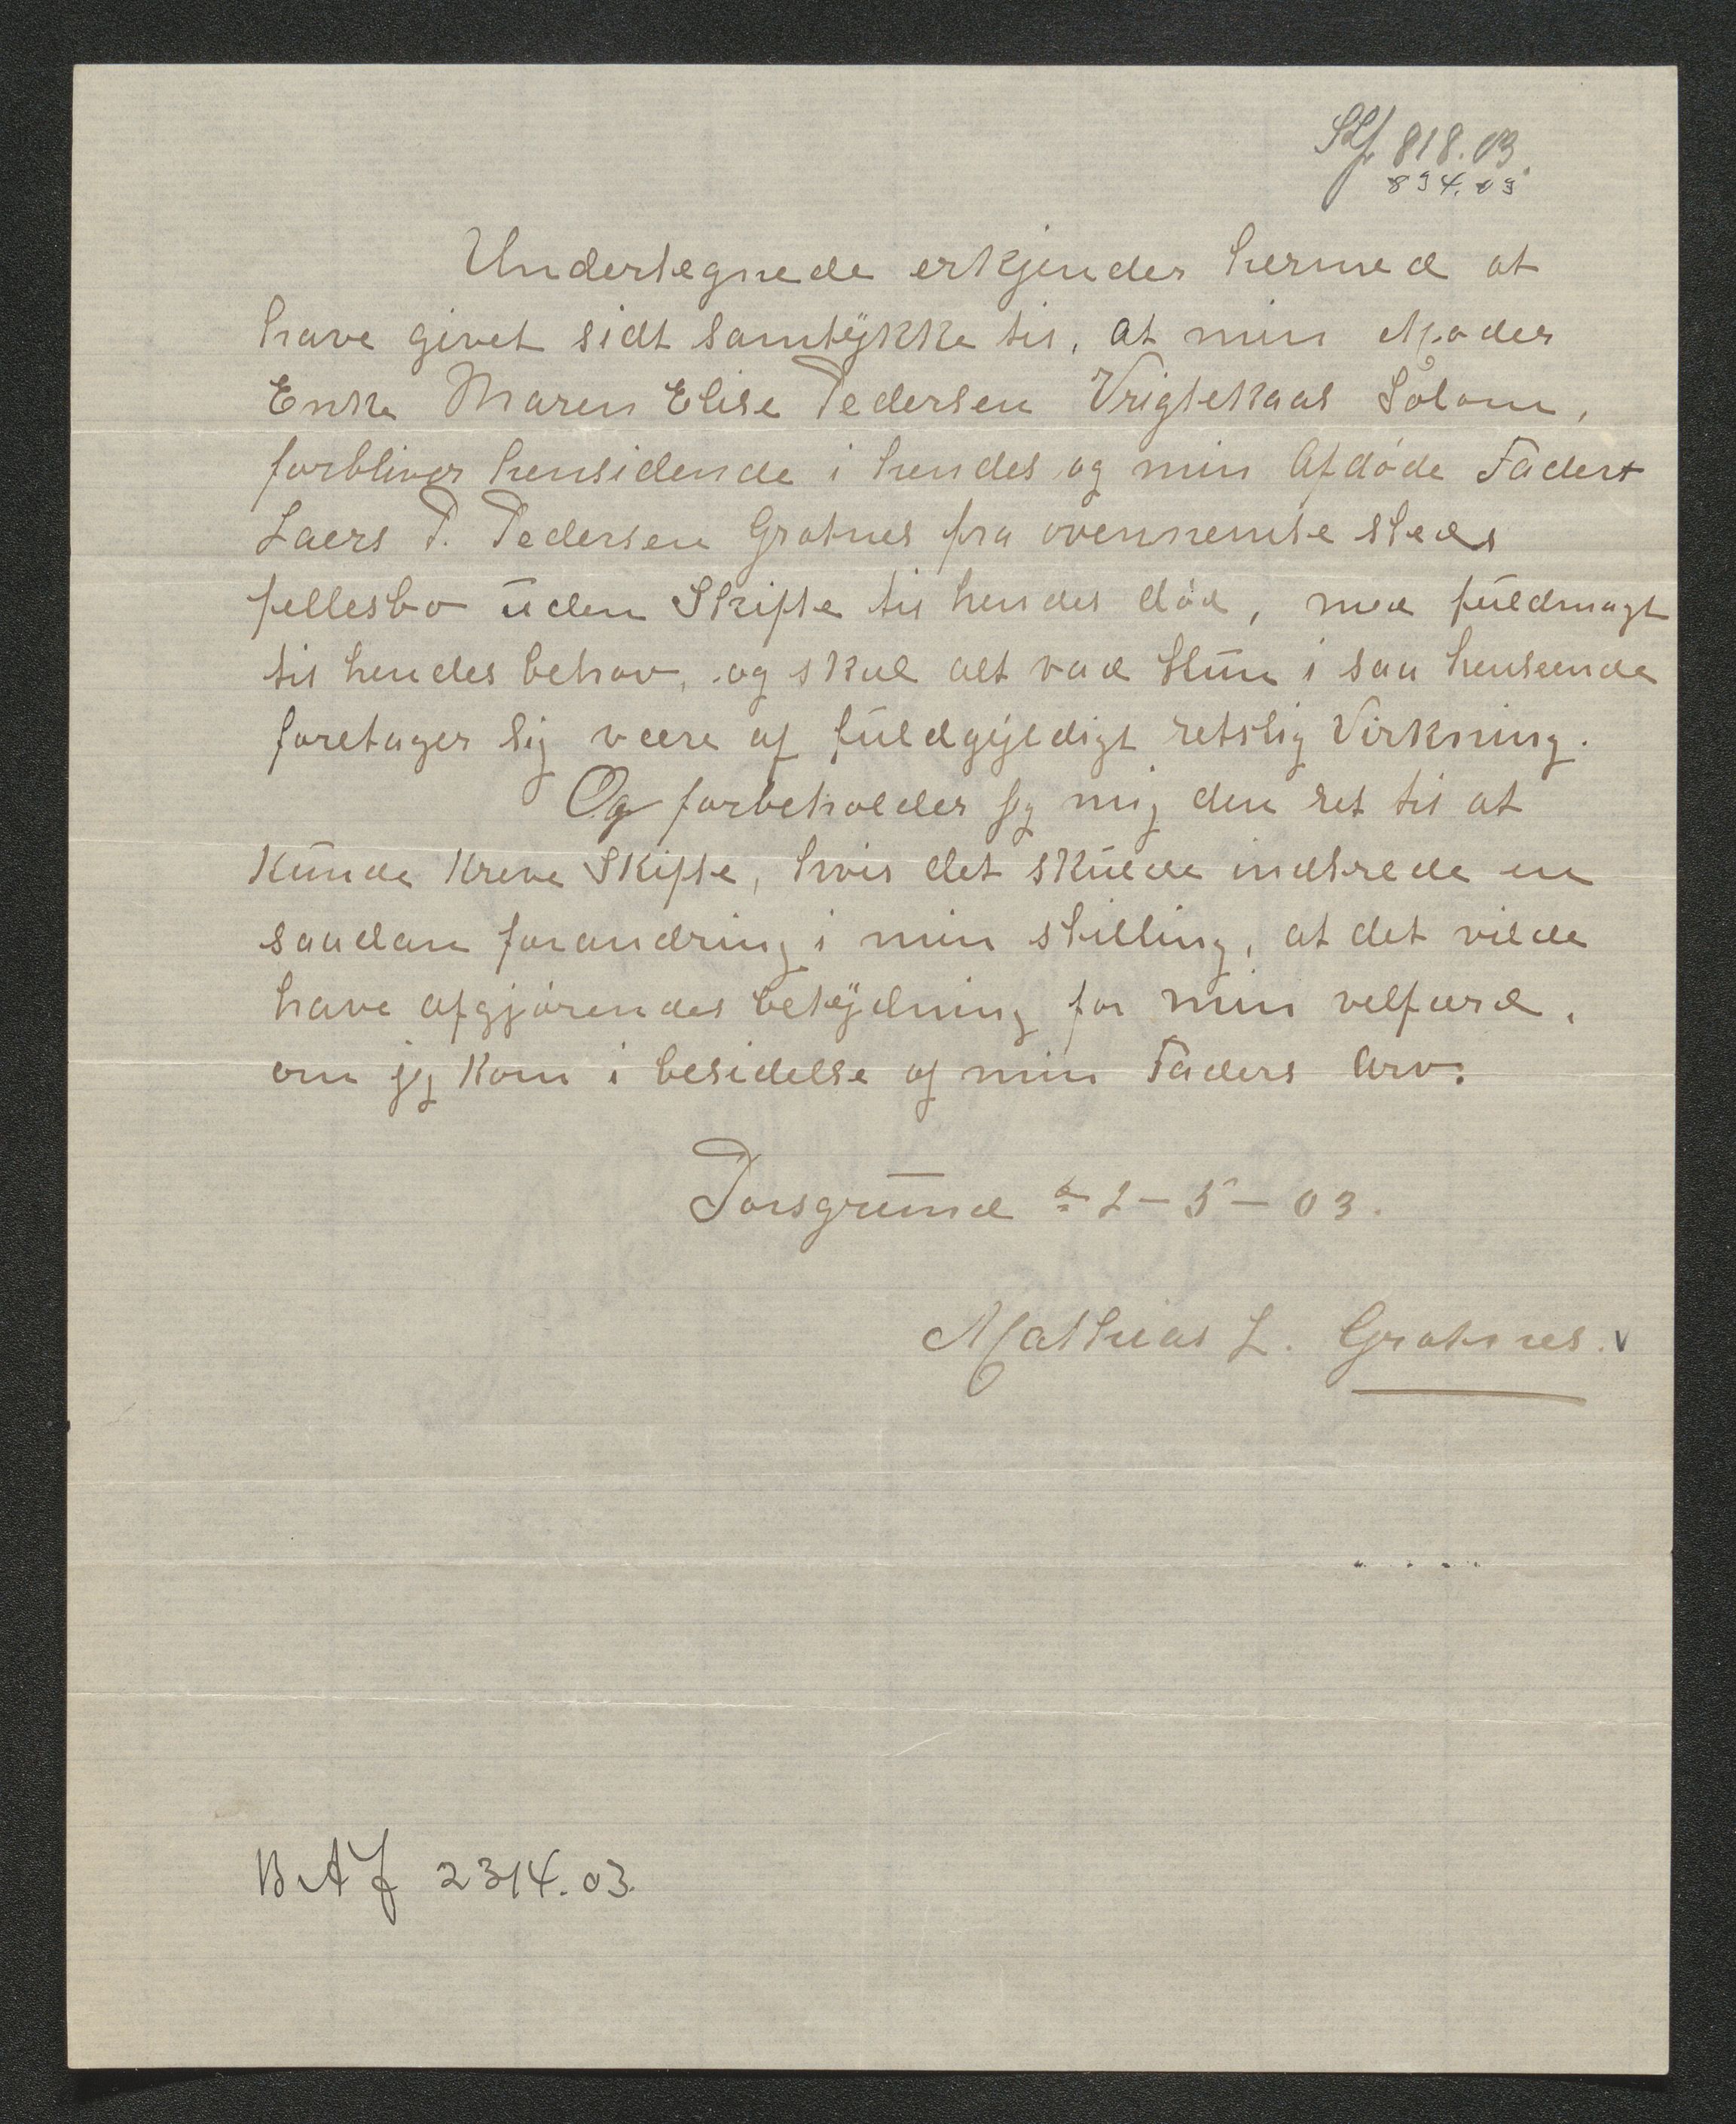 Skf 818.03.
894.03
Undertegnede erkjender hermed at
have givet sidt samtÿkke til, at min Moder
Enke Maren Elise Pedersen Vrigtekaas Solum,
forbliver hensidende i hendes og min Afdøde Faders
Laers P. Pedersen Grotnes fra ovennemte steds
fellesbo uden Skifte til hendes død, med fuldmagt
til hendes behov, og skal alt vad Hun i saa henseende
foretager sig være af fuldgyldigt retslig Virkning.
Og forbeholder jeg mig den ret til at
Kunde Kreve Skifte, hvis det skulde indtrede en
saadan forandring i min stilling, at det vilde
have afgjørendes betÿdning for min velfærd,
om jeg Kom i besidelse af min Faders Arv.
Porsgrund d 2 – 5 – 03.
Mathias L. Grotnes.
BAJ 2314.03.